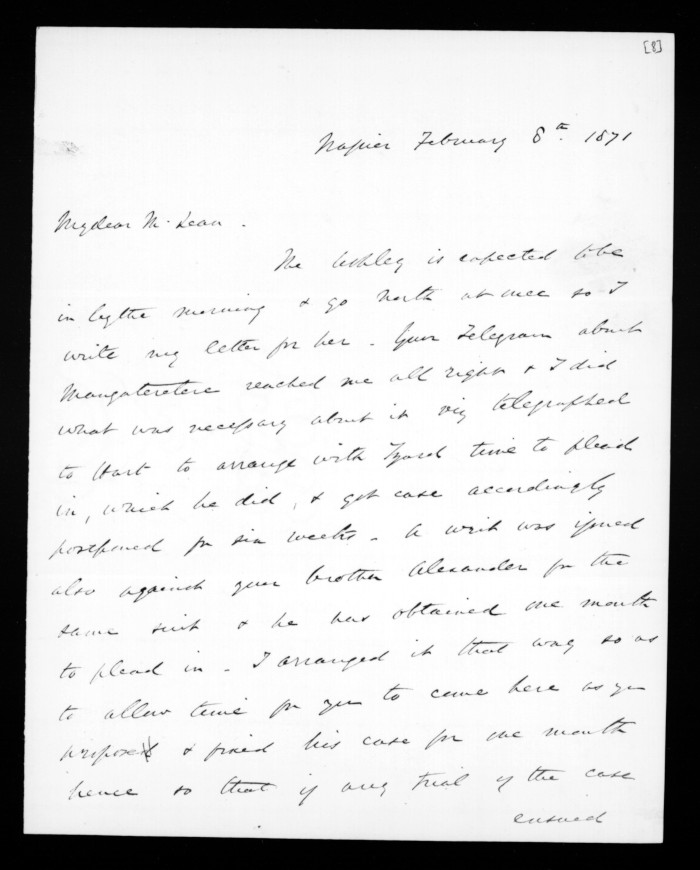 [8]
Napier February 8th. 1871
My dear McLean.
The Ashley is expected to be
in by the morning & go North at once so I
write my letter for her. Your Telegram about
Mangateretere reached me all right & I did
what was necessary about it viz telegraphed
to Hart to arrange with Izard time to plead
in, which he did, & got case accordingly
postponed for six weeks. A writ was issued
also against your brother Alexander for the
same suit & he has obtained one month
to plead in. I arranged it that way so as
to allow time for you to come here as you
proposed & fixed his case for one month
hence so that if any trial of the case
ensued